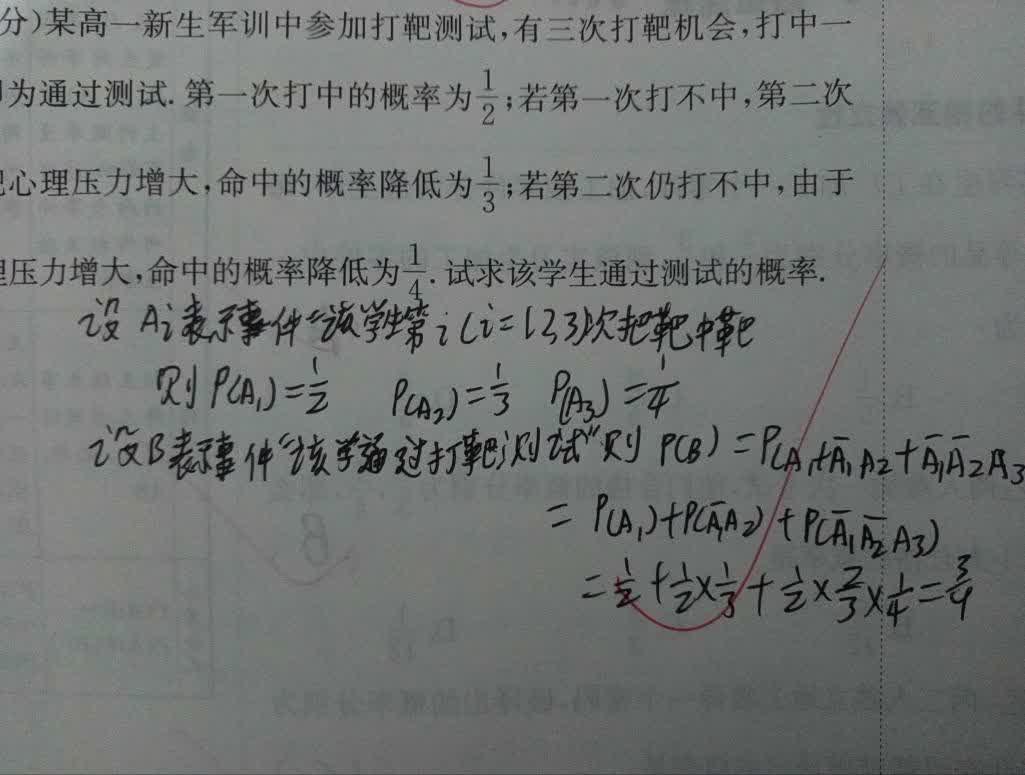 分)某高一新生军训中参加打靶测试,有三次打靶机会,打中一
为通过测试.第一次打中的概率为1/2;若第一次打不中,第二次
心理压力增大,命中的概率降低为1/3;若第二次仍打不中,由于
压力增大,命中的概率降低为1/4.试求该学生通过测试的概率.
设 Ai表示事件"该学生第i(i=1,2,3)次把靶中靶
则 P(A₁)=1/2 P(A₂)=1/3 P(A₃)=1/4
设B表示事件"该学通过打靶测试"则 P(B)=P(A₁+Ā₁A₂+Ā₁Ā₂A₃
=P(A₁)+P(Ā₁A₂)+P(Ā₁Ā₂A₃)
=1/2+1/2×1/3+1/2×2/3×1/4=3/4